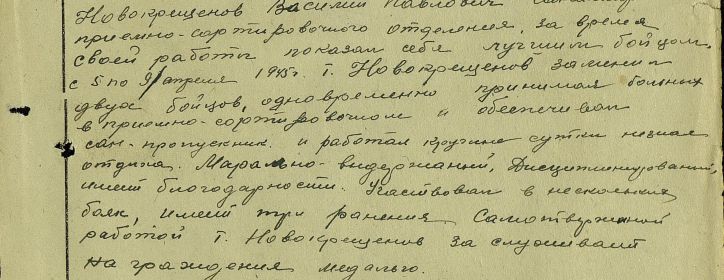 Новокрещенов Василий Павлович
приемно-сортировочного отделения, за время
своей работы показал себя лучшим бойцом.
с 5 по 9/апреля 1945г. т. Новокрещенов заменил
двух бойцов, одновременно принимал больных
в приемно-сортировочном и обеспечивал
сан-пропускник и работал круглые сутки незная
отдыха. Марально-выдержанный, Дисциплинированный,
имеет благодарности. Участвовал в нескольких
боях, имеет три ранения. Самоотверженной
работой т. Новокрещенов заслуживает
награждения медалью.